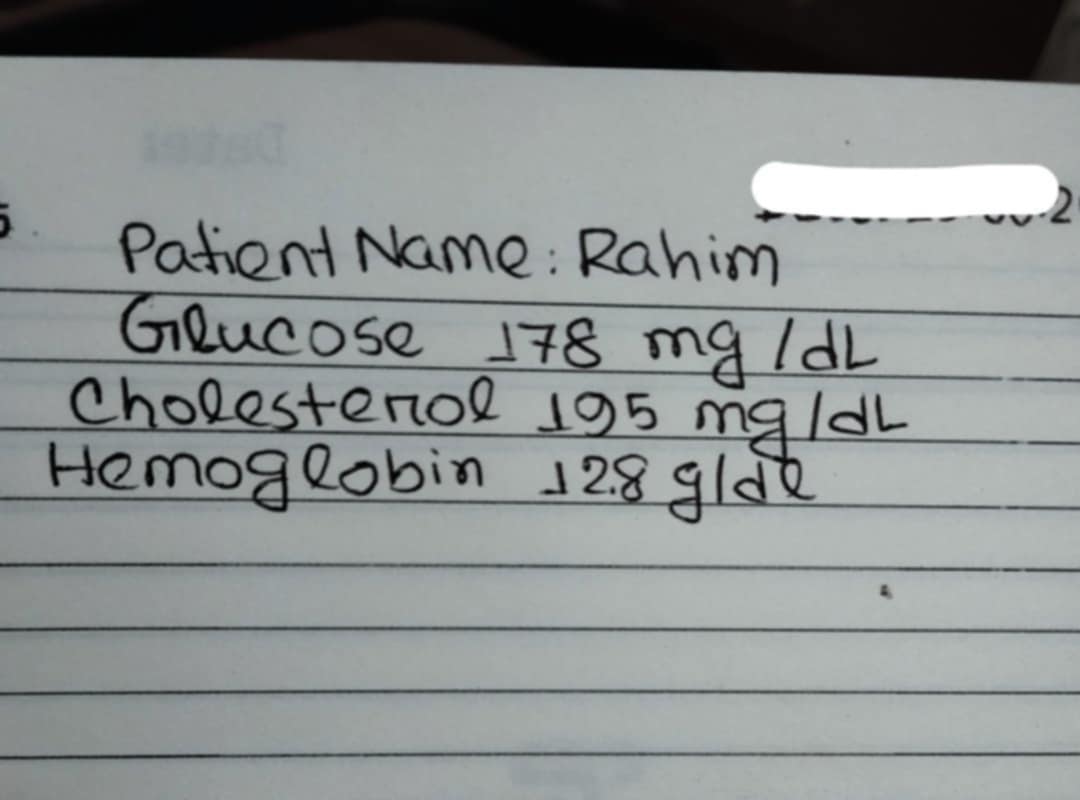 Patient Name: Rahim
Glucose 178 mg/dL
Cholesterol 195 mg/dL
Hemoglobin 12.8 g/dl